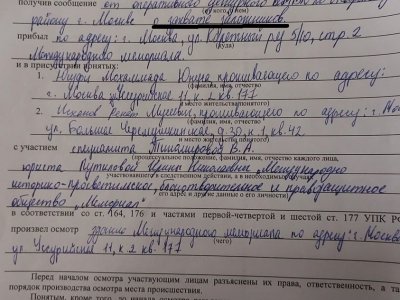 получив сообщение от оперативного дежурного
(от кого, о чем)
району г. Москве захвате заложников
прибыл по адресу: г. Москва, ул. Каретный ряд 5/10, стр. 2
(куда)
Международного мемориала.
и в присутствии понятых:
1. Мохаммада Юнуса проживающего по адресу:
(фамилия, имя, отчество
г. Москва Уссурийская 11, к 2 кв. 177
и место жительства понятого)
2. проживающего по адресу: г. Мос
(фамилия, имя, отчество
ул. Большая Черемушкинская, д. 30, к. 1, кв. 42
и место жительства понятого)
с участием специалиста Тишамирова В. А.
(процессуальное положение, фамилия, имя, отчество каждого лица,
юриста Николаевны „Международно
участвовавшего в следственном действии, а в необходимых случаях
историко-просветительское, благотворительное и правозащитное
его адрес и другие данные о его личности)
общество „Мемориал"
в соответствии со ст. 164, 176 и частями первой-четвертой и шестой ст. 177 УПК РО
произвел осмотр здание Международного мемориала по адресу: г. Москва
(чего)
ул Уссурийская 11, к 2 кв. 177
Перед началом осмотра участвующим лицам разъяснены их права, ответственность, а та
порядок производства осмотра места происшествия.
Понятым, кроме того, до начала осмотра